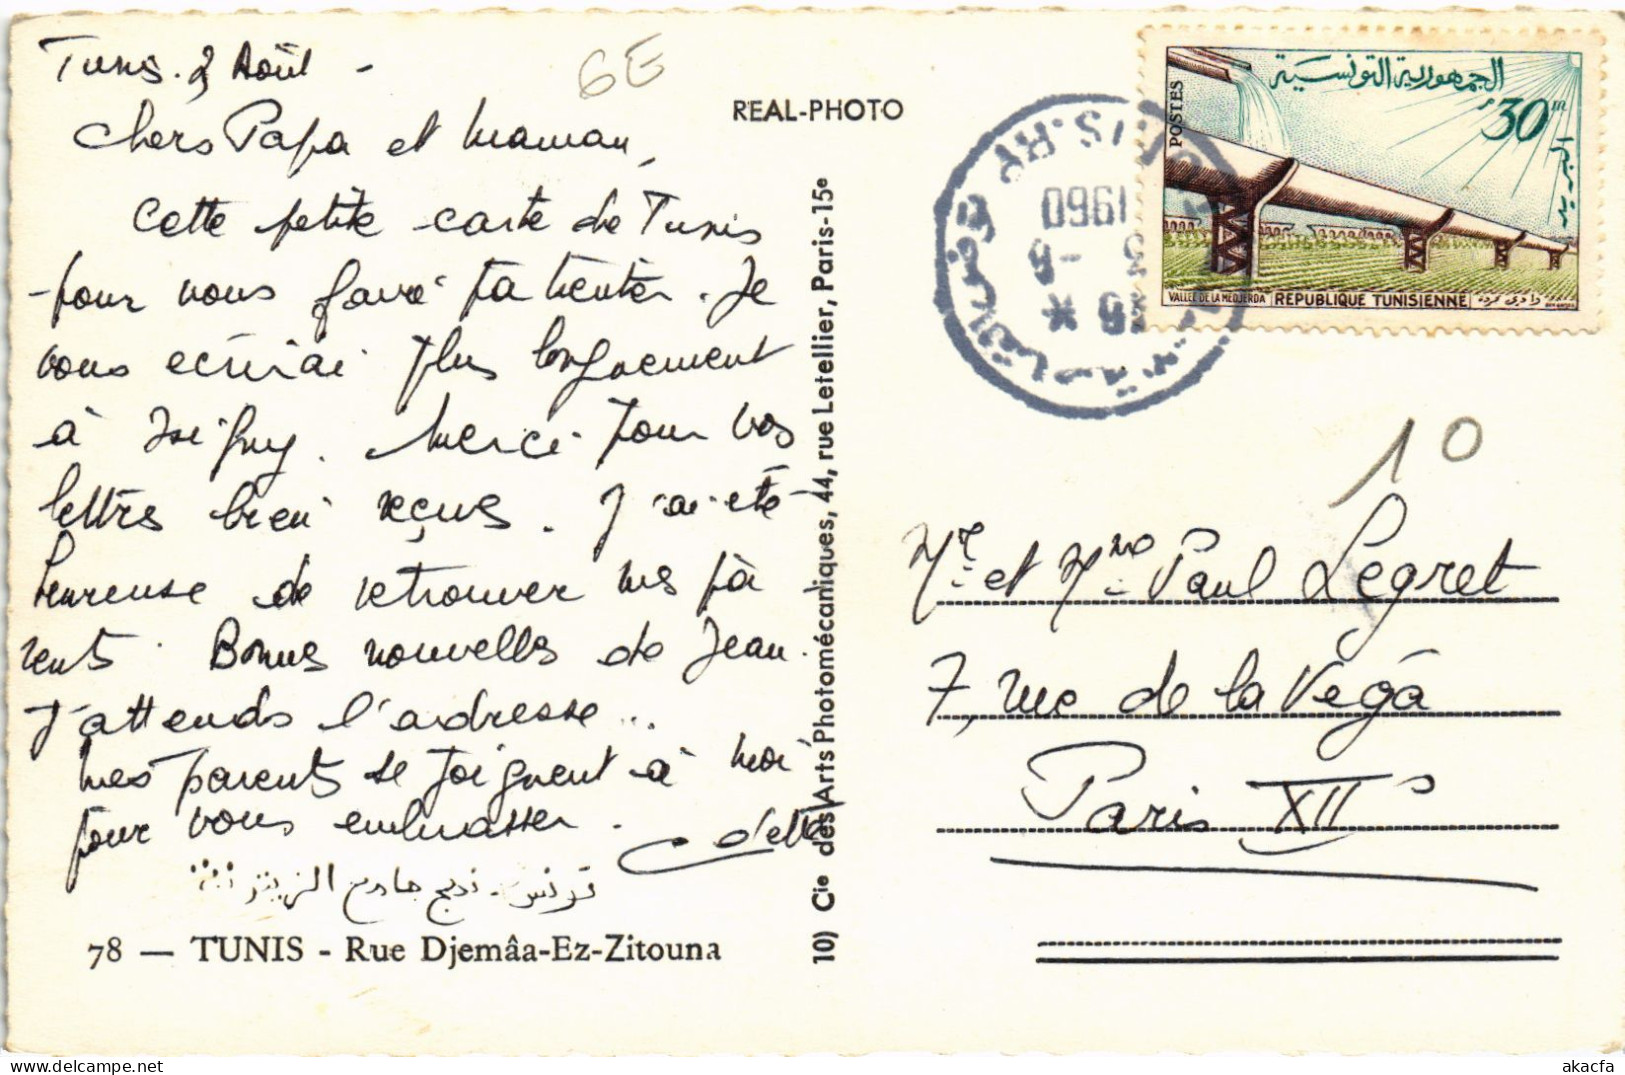 Tunis. 2 Août -
6E
Chers Papa et Maman,
Cette petite carte de Tunis
pour vous faire patienter. Je
vous écrirai plus longuement
à Isigny. Merci pour vos
lettres bien reçues. J'ai été
heureuse de retrouver mes pa
rents. Bonnes nouvelles de Jean.
J'attends l'adresse...
Mes parents se joignent à moi
pour vous embrasser.
تونس - نهج جامع الزيتونة
78 — TUNIS - Rue Djemâa-Ez-Zitouna
REAL-PHOTO
10) Cie des Arts Photomécaniques, 44, rue Letellier, Paris-15e
TUNIS. RP
1960
3 -8
16 *
الجمهورية التونسية
30m
POSTES
البريد
VALLÉE DE LA MEDJERDA RÉPUBLIQUE TUNISIENNE وادي مجردة
10
Mr et Mme Paul Legret
7, rue de la Véga
Paris XIIs
akacfa